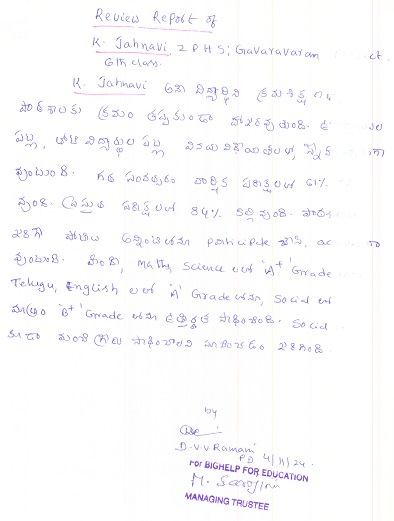 Review Report of
K. Jahnavi, Z P H S, Gavaravaram
6th class.
K. Jahnavi అనే విద్యార్థిని క్రమశిక్షణ గా
పాఠశాలకు క్రమం తప్పకుండా హాజరవుతుంది.
పట్ల, తోటి విద్యార్థుల పట్ల వినయ విధేయతలతో, స్నేహ
వుంటుంది. గత సంవత్సరం వార్షిక పరీక్షలలో 61%
వుంది. ప్రస్తుత పరీక్షలలో 84%
participate చేసి,
వుంటుంది. హిందీ, Maths, Science లలో 'A+' Grade
Telugu, English లలో 'A' Grade లోనూ, Social లో
మాత్రం 'B+' Grade లోనూ ఉత్తీర్ణత సాధించింది. Social
కూడా మంచి గ్రేడు సాధించాలని సూచించడం జరిగింది.
by
D.V.V Ramani
PD 4/11/24.
For BIGHELP FOR EDUCATION
M. Sarojini
MANAGING TRUSTEE